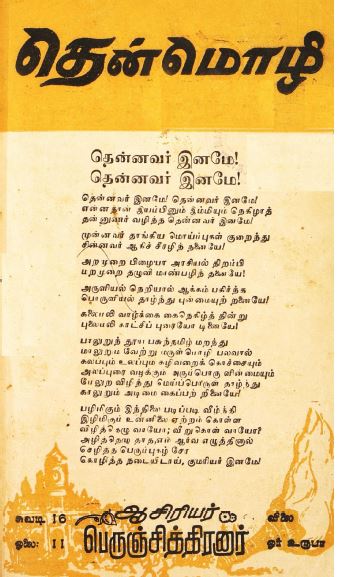 தென்மொழி
தென்னவர் இனமே!
தென்னவர் இனமே!
தென்னவர் இனமே! தென்னவர் இனமே!
என்னதான் இயம்பினும் இம்மியும் நெகிழாத்
தன்னுணர் வழித்த தென்னவர் இனமே!
முன்னவர் தாங்கிய மொய்ம்புகள் குறைந்து
சின்னவர் ஆகிச் சீரழிந் தனையே!
அறமுறை பிழையா அரசியல் திறம்பி
புறமுறை தழுவி மாண்பழிந் தனையே!
அருளியல் நெறியால் ஆக்கம் பகிர்ந்த
பொருளியல் தாழ்ந்து புன்மையுற் றனையே!
கலைமலி வாழ்க்கை கைநெகிழ்த் தின்று
புலைமலி காட்சிப் புரையோ டினையே!
பாலுறுந் தூய பசுந்தமிழ் மறந்து
மாலுறும் வேற்று மருள்மொழி பலவால்
கலப்பும் உலப்பும் கழிவறைக் கொச்சையும்
அலப்புரை வடிக்கும் அருப்பொரு ளின்மையும்
மேலுற விழித்து மெய்ப்பொருள் தாழ்ந்து
காலுறும் அடிமை கைப்பற் றினையே!
பழிமிகும் இந்நிலை படிப்படி வீழ்த்தி
இழிமிகும் உன்னிலை ஏற்றம் கொள்ள
விழித்தெழு வாயோ; வீறுகொள் வாயோ?
அழித்தெழு தாதஎம் ஆர்வ எழுத்தினால்
செழித்த பெரும்புகழ் சேர
கொழித்த நடையிடாய், குமரியர் இனமே!
சுவடி 16
ஓலை: 11
ஆசிரியர்
பெருஞ்சித்திரனார்
விலை
ஓர் உருபா